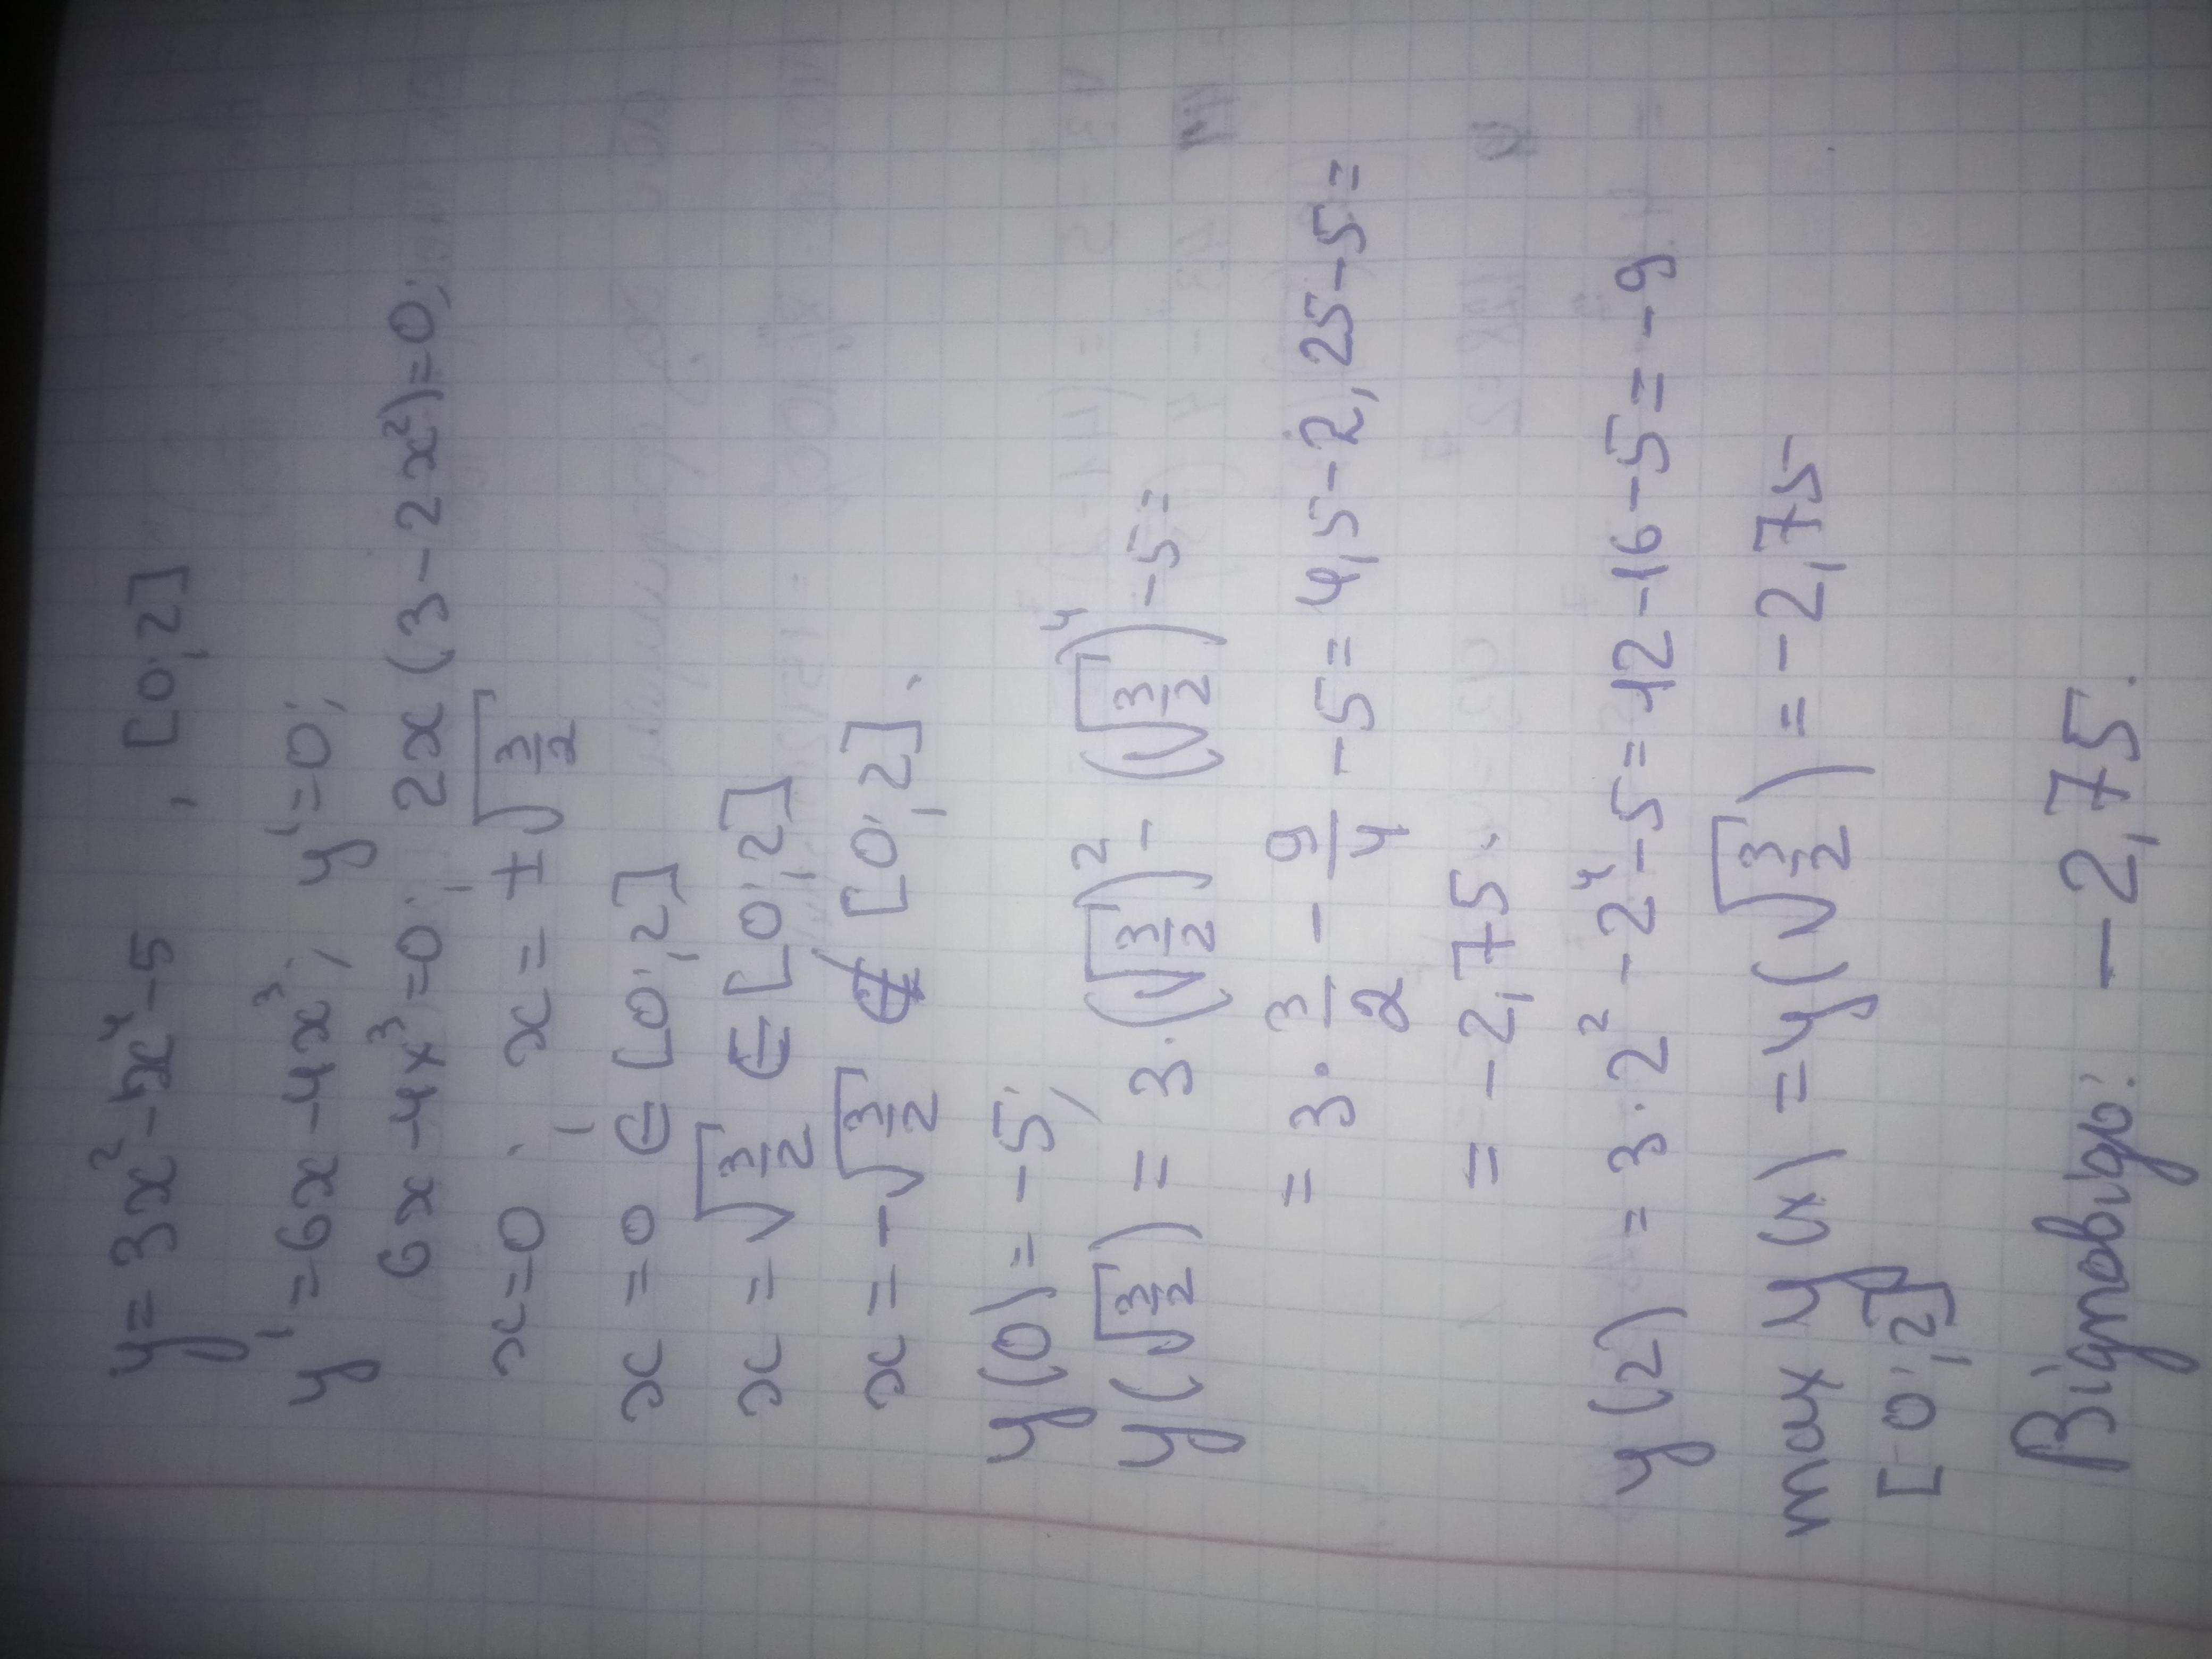 y = 3x² - x⁴ - 5 , [0;2]
y' = 6x - 4x³; y' = 0;
6x - 4x³ = 0; 2x(3 - 2x²) = 0;
x = 0; x = ±√(3/2)
x = 0 ∈ [0;2]
x = √(3/2) ∈ [0;2]
x = -√(3/2) ∉ [0;2].
y(0) = -5;
y(√(3/2)) = 3·(√(3/2))² - (√(3/2))⁴ - 5 =
= 3·3/2 - 9/4 - 5 = 4,5 - 2,25 - 5 =
= -2,75.
y(2) = 3·2² - 2⁴ - 5 = 12 - 16 - 5 = -9
max y(x) = y(√(3/2)) = -2,75
[0;2]
Відповідь: -2,75.